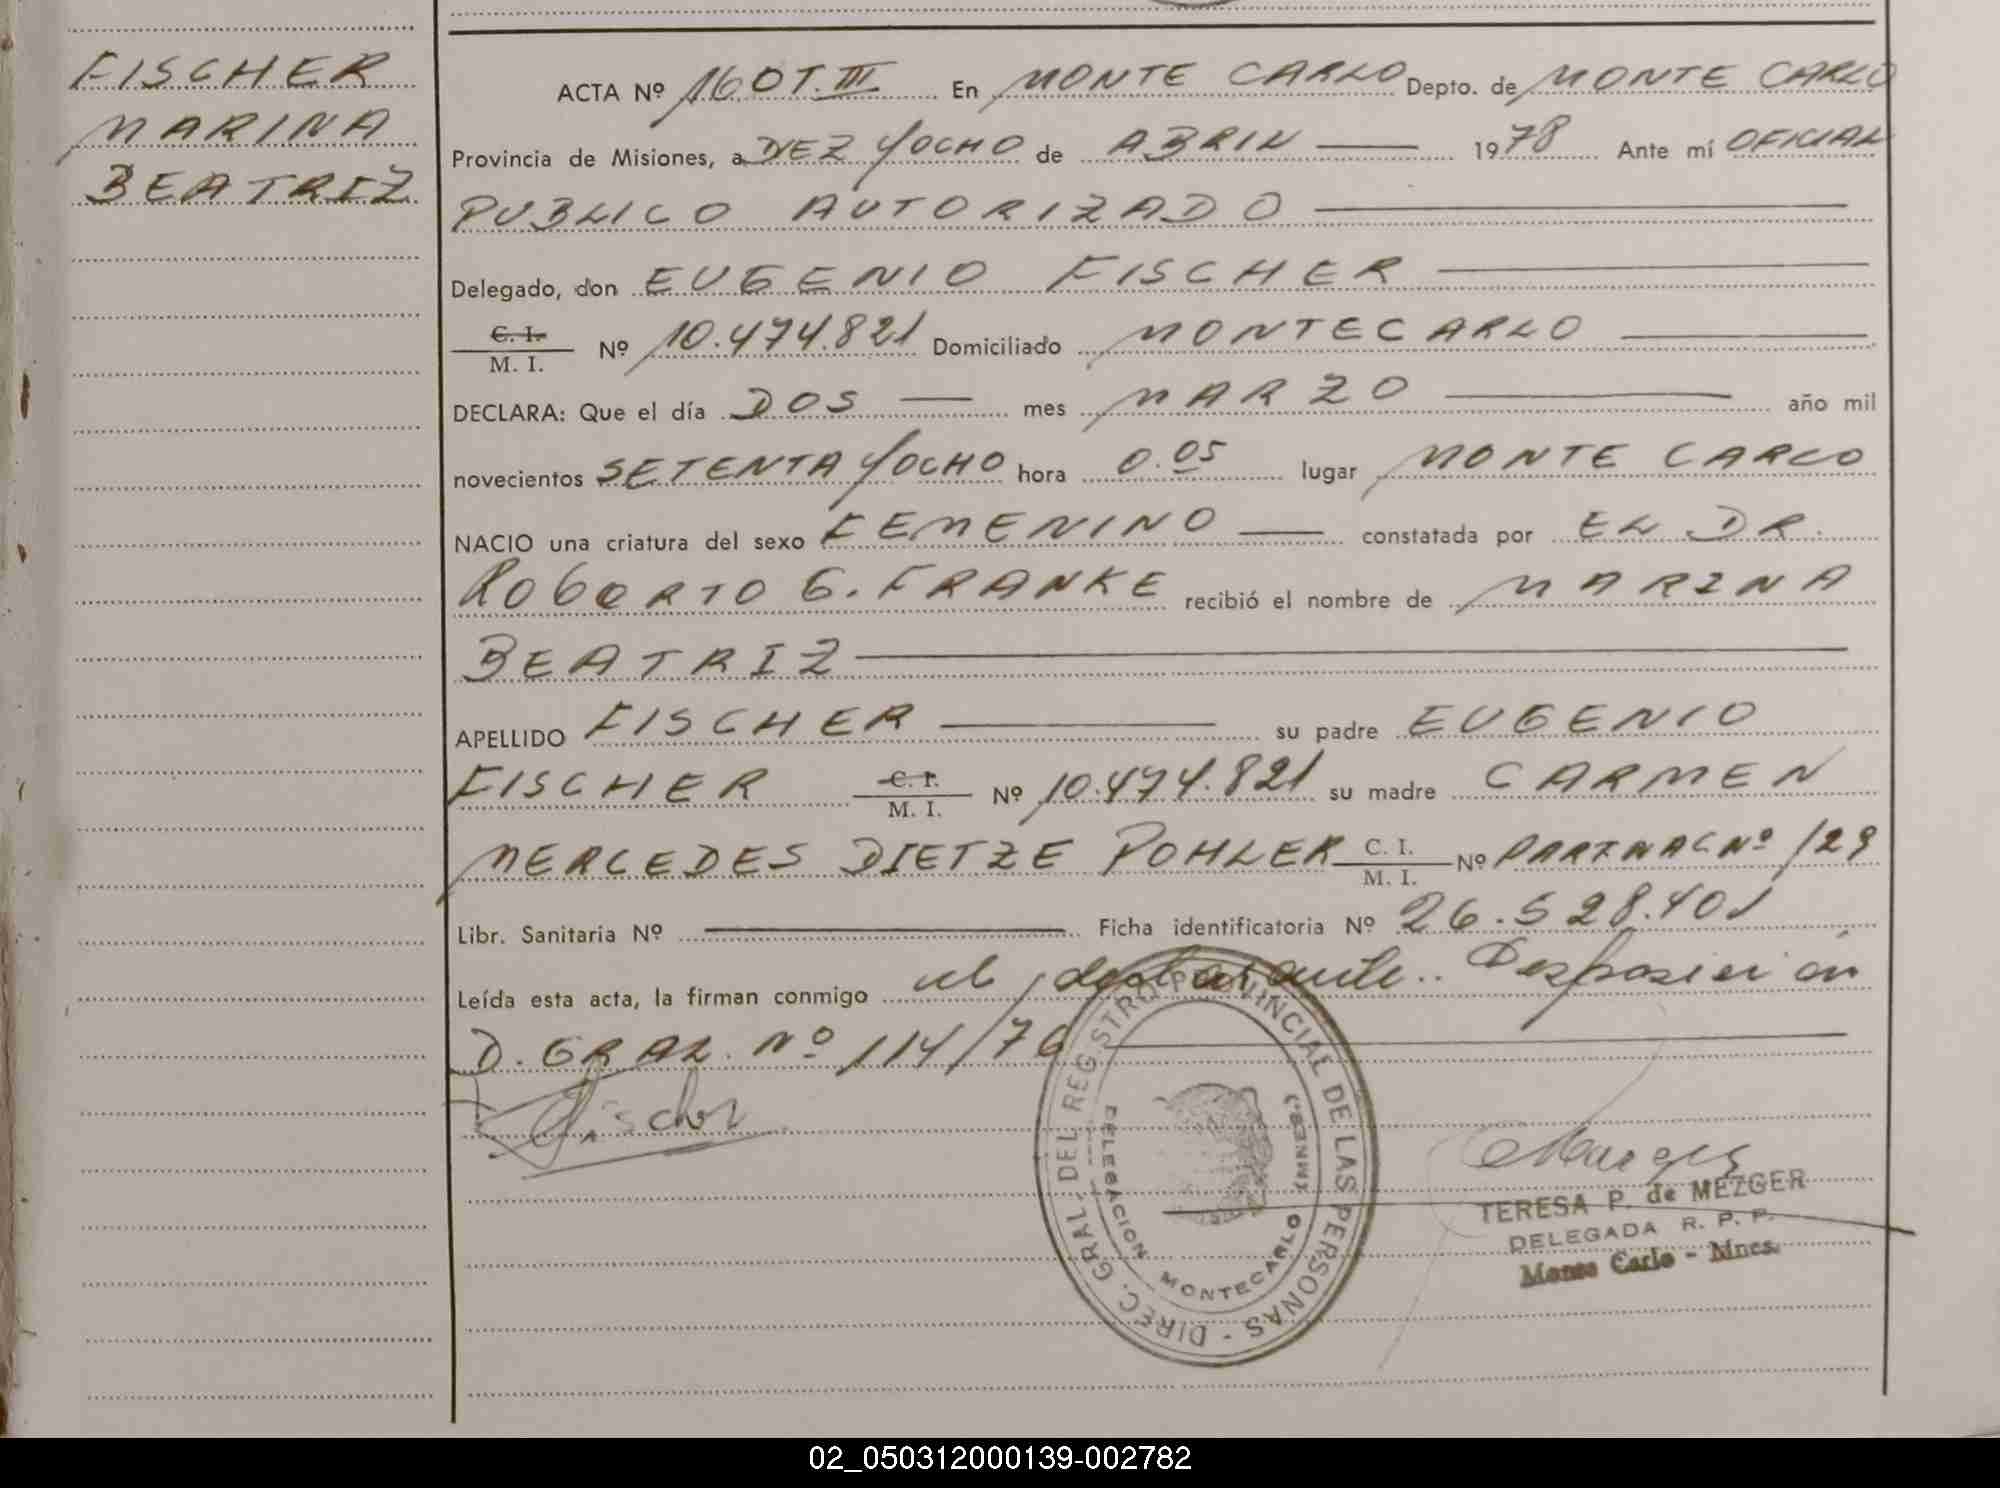 FISCHER
MARINA
BEATRIZ
ACTA Nº 160 T. III En MONTE CARLO Depto. de MONTE CARLO
Provincia de Misiones, a DIEZ YOCHO de ABRIL 1978 Ante mí OFICIAL
PUBLICO AUTORIZADO
Delegado, don EUGENIO FISCHER
C. I.
M. I. Nº 10.474.821 Domiciliado MONTECARLO
DECLARA: Que el día DOS mes MARZO año mil
novecientos SETENTA YOCHO hora 0.05 lugar MONTE CARLO
NACIO una criatura del sexo FEMENINO constatada por EL DR.
ROBERTO G. FRANKE recibió el nombre de MARINA
BEATRIZ
APELLIDO FISCHER su padre EUGENIO
FISCHER C. I. M. I. Nº 10.474.821 su madre CARMEN
MERCEDES DIETZE POHLER C. I. M. I. Nº PART NAC Nº 129
Libr. Sanitaria Nº Ficha identificatoria Nº 26.528.401
Leída esta acta, la firman conmigo el declarante.. Desposición
D. GRAL. Nº 114/76
Fischer
DIREC. GRAL. DEL REGISTRO PROVINCIAL DE LAS PERSONAS -
DELEGACION MONTECARLO
TERESA P. de MEZGER
DELEGADA R. P. P.
Monte Carlo - Mnes.
02_050312000139-002782